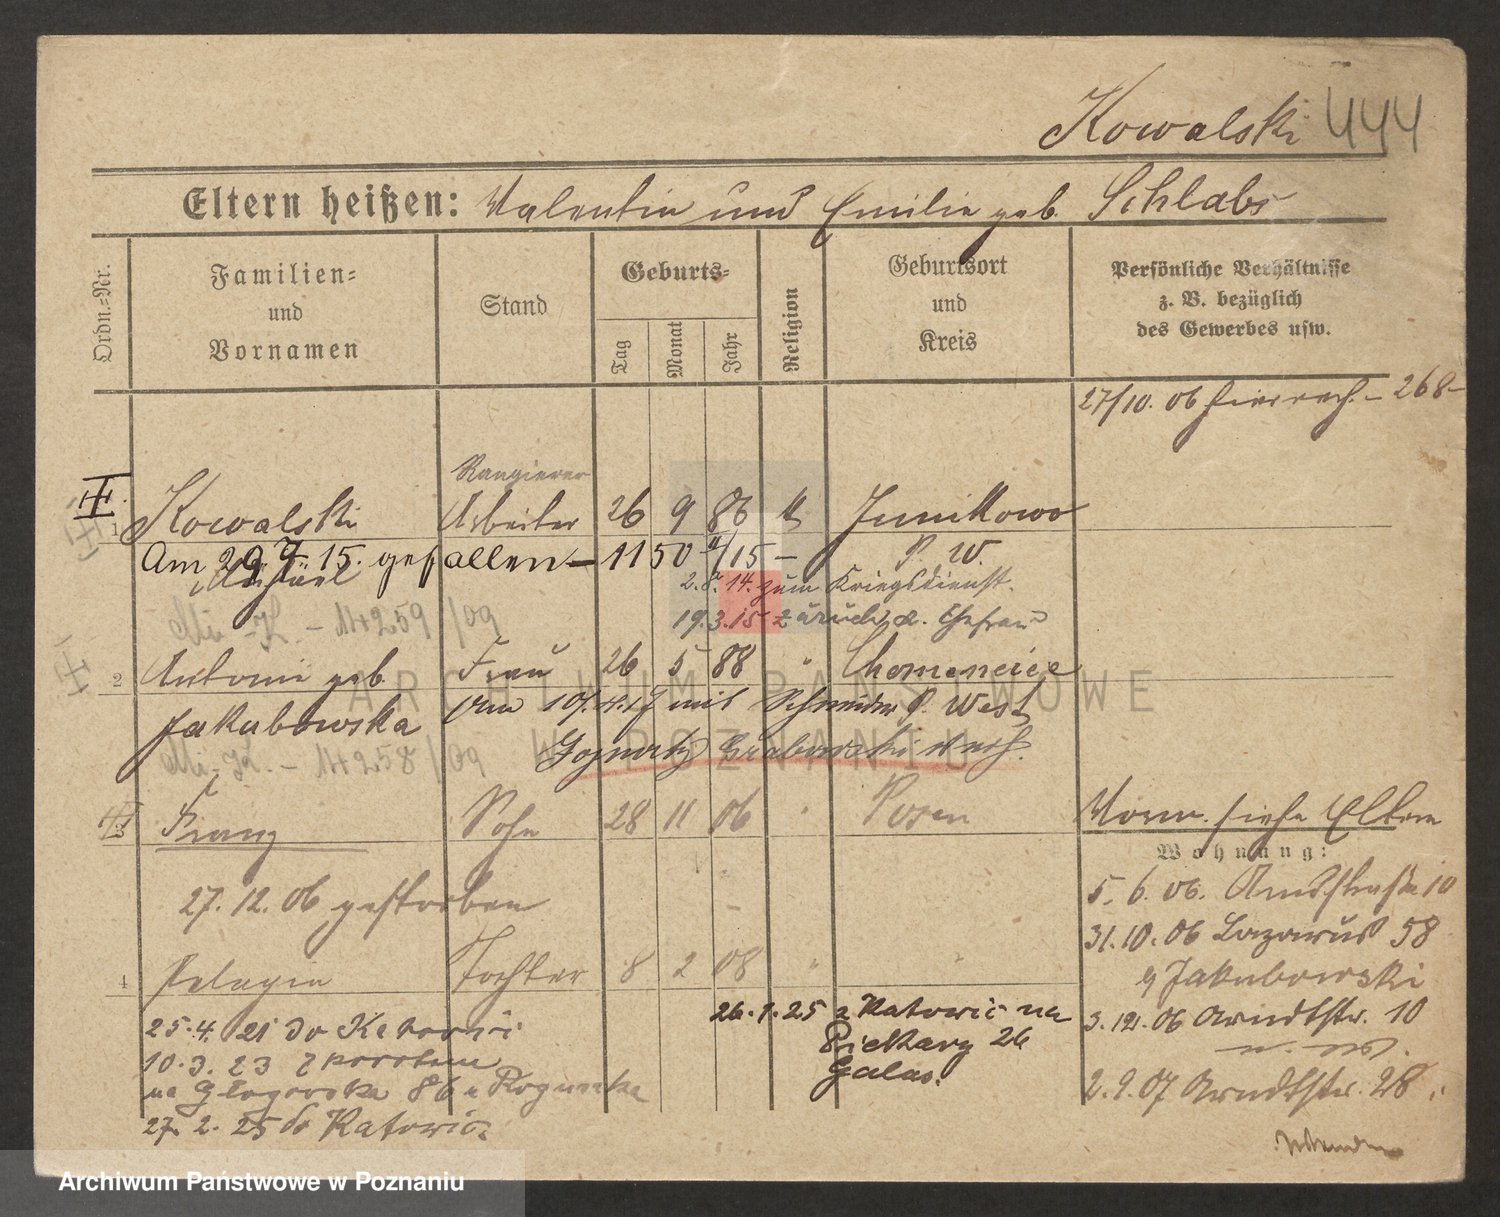 Kowalski 444
Eltern heißen: Valentin und Emilie geb. Schlabs
Ordn.=Nr.
Familien=
und
Vornamen
Stand
Geburts=
Tag
Monat
Jahr
Religion
Geburtsort
und
Kreis
Persönliche Verhältnisse
z. B. bezüglich
des Gewerbes usw.
27/10. 06 268
Rangierer
1 Kowalski Arbeiter 26 9 86 k Junikowo
Am 29 7. 15. gefallen – 1150 /15 – P. W.
2. 8. 14. zum Kriegsdienst.
19. 3. 15 zurück Ehefrau
14259/09
2 Antonie geb. Frau 26 5 88 "
Jakubowska am 4. 17 mit Schneider P. West
Grabowski verh.
14258/09
3 Franz Sohn 28 11 06 " Posen
Vorm. siehe Eltern
Wohnung:
27. 12. 06 gestorben
5. 6. 06. 10
31. 10. 06 Lazarus 58
4 Pelagia Tochter 8 2 08 " "
Jakubowski
25. 4. 21 do Katowic
26. 1. 25 z Katowic na
3. 12. 06 Arndtstr. 10
10. 3. 23
Piekary 26
na Głogowska 86
Galas.
2. 9. 07 Arndtstr. 28
27. 2. 25 do Katowic
ARCHIWUM PAŃSTWOWE
W POZNANIU
Archiwum Państwowe w Poznaniu